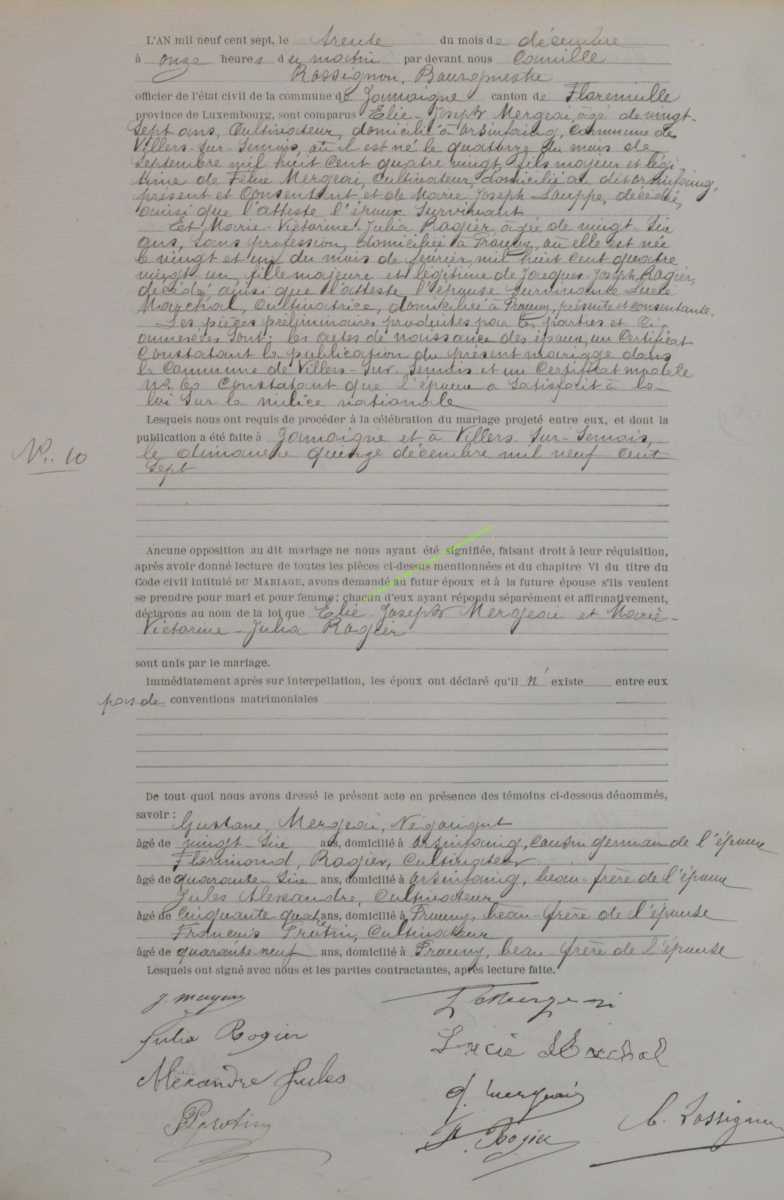 L'AN mil neuf cent sept, le trente du mois de décembre
à onze heures du matin par devant nous Camille
Rossignon, Bourgmestre
officier de l'état civil de la commune de Jamoigne canton de Florenville
province de Luxembourg, sont comparus Elie-Joseph Mergeai, âgé de vingt-
sept ans, Cultivateur, domicilié à Orsinfaing, Commune de
Villers-sur-Semois, où il est né le quatorze du mois de
Septembre mil huit cent quatre vingt, fils majeur et légi
time de Félix Mergeai, Cultivateur, domicilié au dit Orsinfaing,
présent et Consentant et de Marie Joseph décédée,
ainsi que l'atteste l'époux Survivant
Et Marie-Victorine-Julia Rogier, âgée de vingt-Six
ans, Sans profession, domiciliée à Prouvy, où elle est née
le vingt et un du mois de février mil huit cent quatre
vingt un, fille majeure et légitime de Jacques-Joseph Rogier,
décédé ainsi que l'atteste l'épouse Survivante Lucie
Marchal, Cultivatrice, domiciliée à Prouvy, présente et consentante.
Les pièces préliminaires produites par les parties et ci
annexées sont: les actes de naissance des époux, un Certificat
Constatant la publication du présent mariage dans
la Commune de Villers-Sur-Semois et un Certificat modèle
Constatant que l'époux a Satisfait à la
loi Sur la milice nationale
Lesquels nous ont requis de procéder à la célébration du mariage projeté entre eux, et dont la
publication a été faite à Jamoigne et à Villers-Sur-Semois,
N°. 10
le dimanche quinze décembre mil neuf cent
Sept
Ancune opposition au dit mariage ne nous ayant été signifiée, faisant droit à leur réquisition,
après avoir donné lecture de toutes les pièces ci-dessus mentionnées et du chapitre VI du titre du
Code civil intitulé DU MARIAGE, avons demandé au futur époux et à la future épouse s'ils veulent
se prendre pour mari et pour femme; chacun d'eux ayant répondu séparément et affirmativement,
déclarons au nom de la loi que Elie-Joseph Mergeai et Marie-
Victorine-Julia Rogier
sont unis par le mariage.
Immédiatement après sur interpellation, les époux ont déclaré qu'il n'existe entre eux
pas de conventions matrimoniales
De tout quoi nous avons dressé le présent acte en présence des témoins ci-dessous dénommés,
savoir: Gustave Mergeai, Négociant
âgé de vingt-Six ans, domicilié à Orsinfaing, Cousin germain de l'époux
Florimond, Rogier, Cultivateur
âgé de quarante-Six ans, domicilié à Orsinfaing, beau-frère de l'époux
Jules Alexandre, Cultivateur
âgé de Cinquante quat ans, domicilié à Prouvy, beau-frère de l'épouse
François Protin, Cultivateur
âgé de quarante-neuf ans, domicilié à Prouvy, beau-frère de l'épouse
Lesquels ont signé avec nous et les parties contractantes, après lecture faite.
Julia Rogier
Lucie Marchal
Alexandre Jules
Protin
Rogier
C. Rossignon